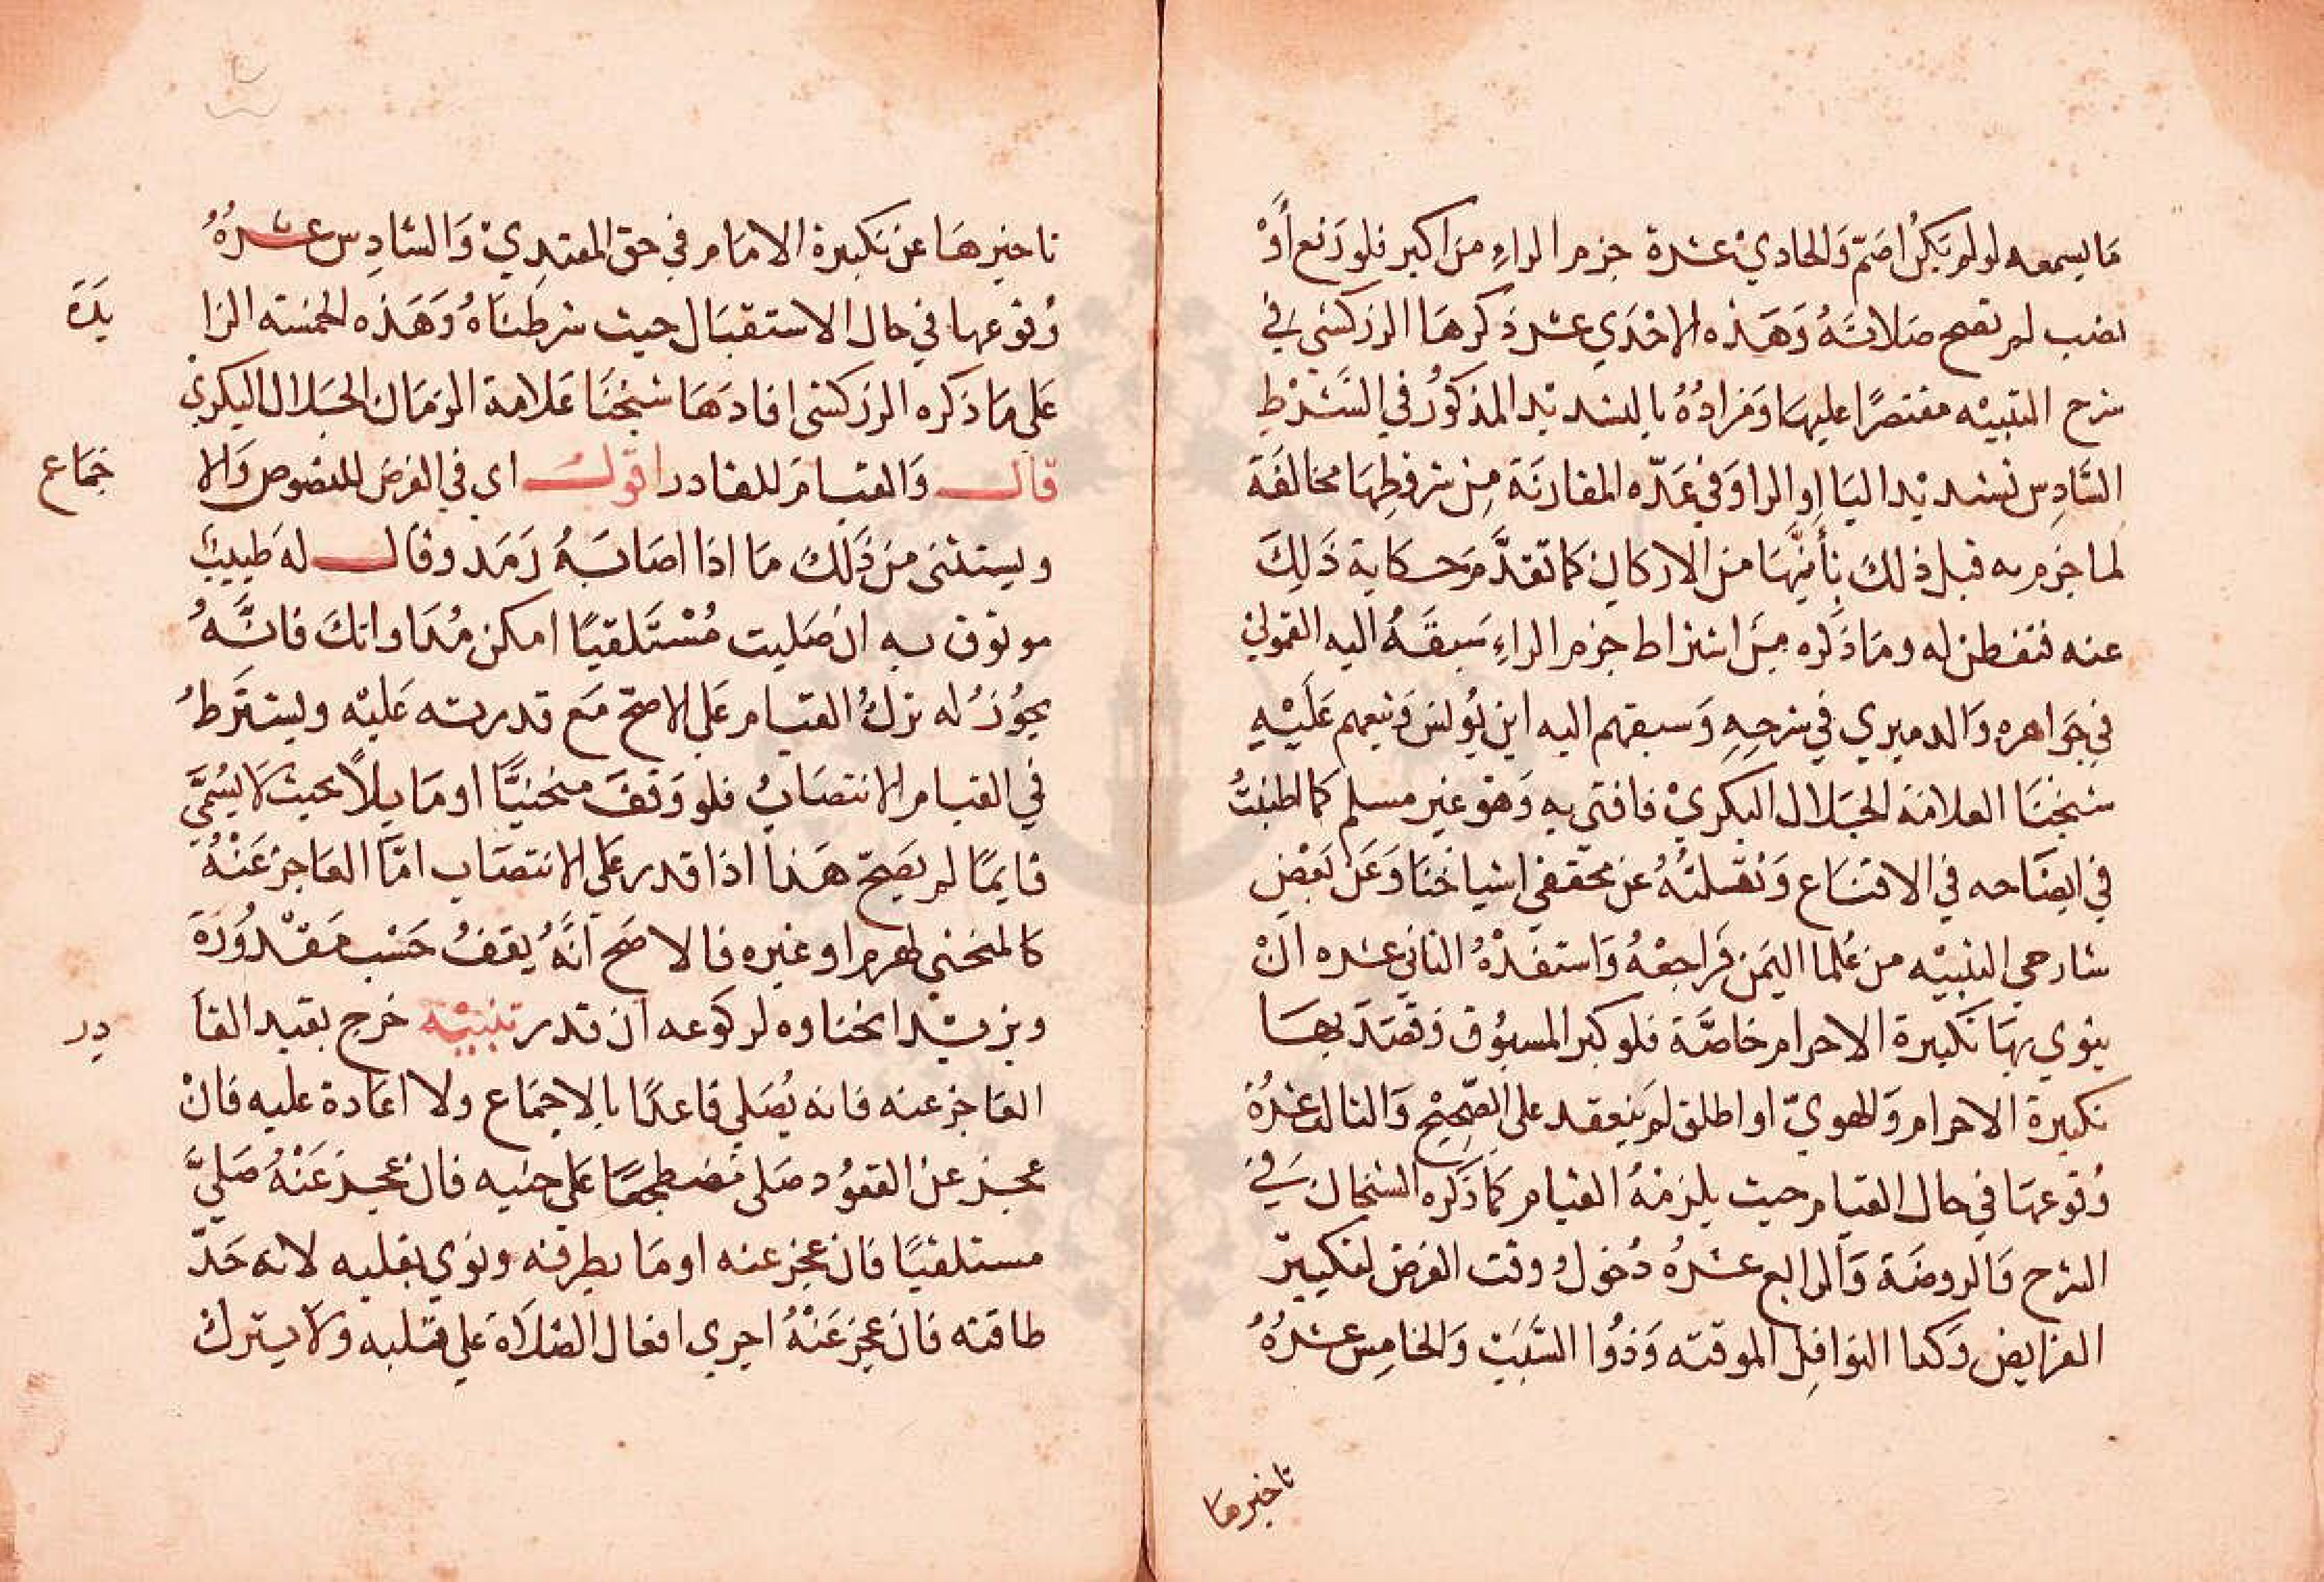 مَا يسمعه لو لم يَكُن اصَمّ وَالحاديْ عشرة جزم الراءِ من اكبر فلو رَفع أَوْ
نصب لم تصح صَلاتهُ وَهَذه الاحْدَي عشر ذَكرهَا الزركشي في
شرح التنبيْه مقتصرًا عليهَا وَمرادُهُ بالتشديْد المذكوُر في الشَرْطِ
السَّادِس تشديْد اليَا اوِ الرا وَفي عَدّه المقارنَة مِن شروطِهَا مخالَفَة
لما جَزم به قبل ذلكَ بأنَّهَا من الاركانِ كما تقدَّم حكاية ذَلِكَ
عنه فتفطن له ومَا ذَكره مِن اشتراط جزم الراءِ سَبقَهُ اليه القمولي
في جَواهره وَالدميري في شرحِهِ وَسبقهم اليه ابن يُونس وَتبعهم عَلَيْهِ
شيخنَا العلامَة الجَلال البكريْ فافتي بهِ وَهوَ غير مسلم كما اطنبتُ
في ايضَاحه في الاقنَاع وَنقلتُهُ عن محققي اشياخنَا وَعَن بَعْضِ
شارحي التنبيْه من عُلما اليَمن فَراجعْهُ وَاستفدْهُ الثاني عشره انْ
ينوي بهَا تكبيرة الاحرام خاصَّة فلو كبر المسبوُق وَقصَدَ بهَا
تكبيرة الاحرام وَالهويّ او اطلق لم يَنعقد على الصَّحِيْح وَالثالث عشرُهُ
وُقوعهَا في حال القيام حيث يلزمْهُ القيام كما ذَكره الشيخان في
الشرح وَالروضَة وَالرابع عشرُه دُخولُ وقت الفرض لتكبيْر
الفرايض وَكذا النوَافِل الموقته وَذوُا السَّبَب وَالخامِس عشرُهُ
تاخيرها
تاخيرهَا عن تكبيرة الامَام في حق المقتدِيْ وَالسَّادِس عشرُهُ
وُقوعها في حال الاستقبَال حيث شرطنَاهُ وَهَذه الخمسَة الزا يَدَة
عَلى مَا ذكره الزركشى افادَهَا شيخنَا عَلامة الزمَان الجَلال البكريْ
قال وَالقيام للقادر اقول اي في الفرض للنصُوص وَالا جمَاع
ويستثنى من ذَلكَ مَا اذا اصَابَهُ رَمَد وقال له طبيبٌ
موثوق به ان صَليت مُسْتَلقيًا امكن مُدَاواتكَ فانَّهُ
يجوُزُ له تركُ القيام عَلى الاصَح مَع قدرته عَليْه ويشترَطُ
في القيام الانتصَابُ فلو وَقفَ منحنيًّا او مَايلاً بحيث لا يسُمَّي
قايمًا لم يَصحّ هَذا اذا قدر عَلى الانتصَاب امَّا العَاجز عَنْهُ
كالمنحني لهرم او غيره فالاصَح انَّهُ يقفُ حَسْب مَقْدوُرَهَ
ويزيْد انحناوه لركوعه ان قدر تنبيْه خرج بقيد القا در
العَاجز عنه فانه يُصَلي قاعدًا بالاجمَاع ولا اعَادة عليه فانْ
عجز عن القعوُد صَلى مُضطجعًا عَلى جنبه فان عجز عَنْهُ صَليَّ
مستلقيًا فان عجز عنه اومَا بطرفه ونوي بقلبه لانه حَدّ
طاقته فان عجز عَنْهُ اجري افعال الصَّلاَة على قلبه وَلا يترك